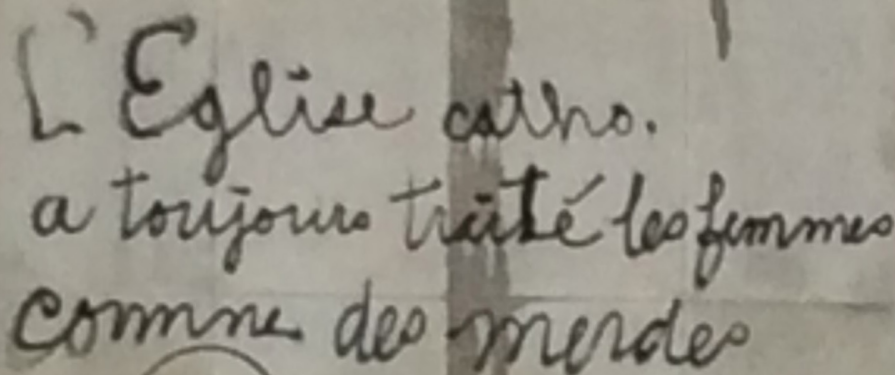 L'Eglise catho.
a toujours traité les femmes
comme des merdes